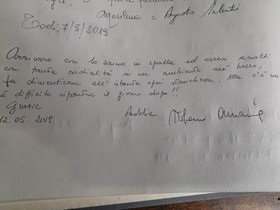 Lodi, 7/5/2019
Arrivare con lo zaino in spalla ed essere accolti
con tanta cordialità in un ambiente così bello
fa dimenticare all'istante ogni stanchezza. Ma c'è un
è difficile ripartire il giorno dopo!!
Grazie
12.05.2019